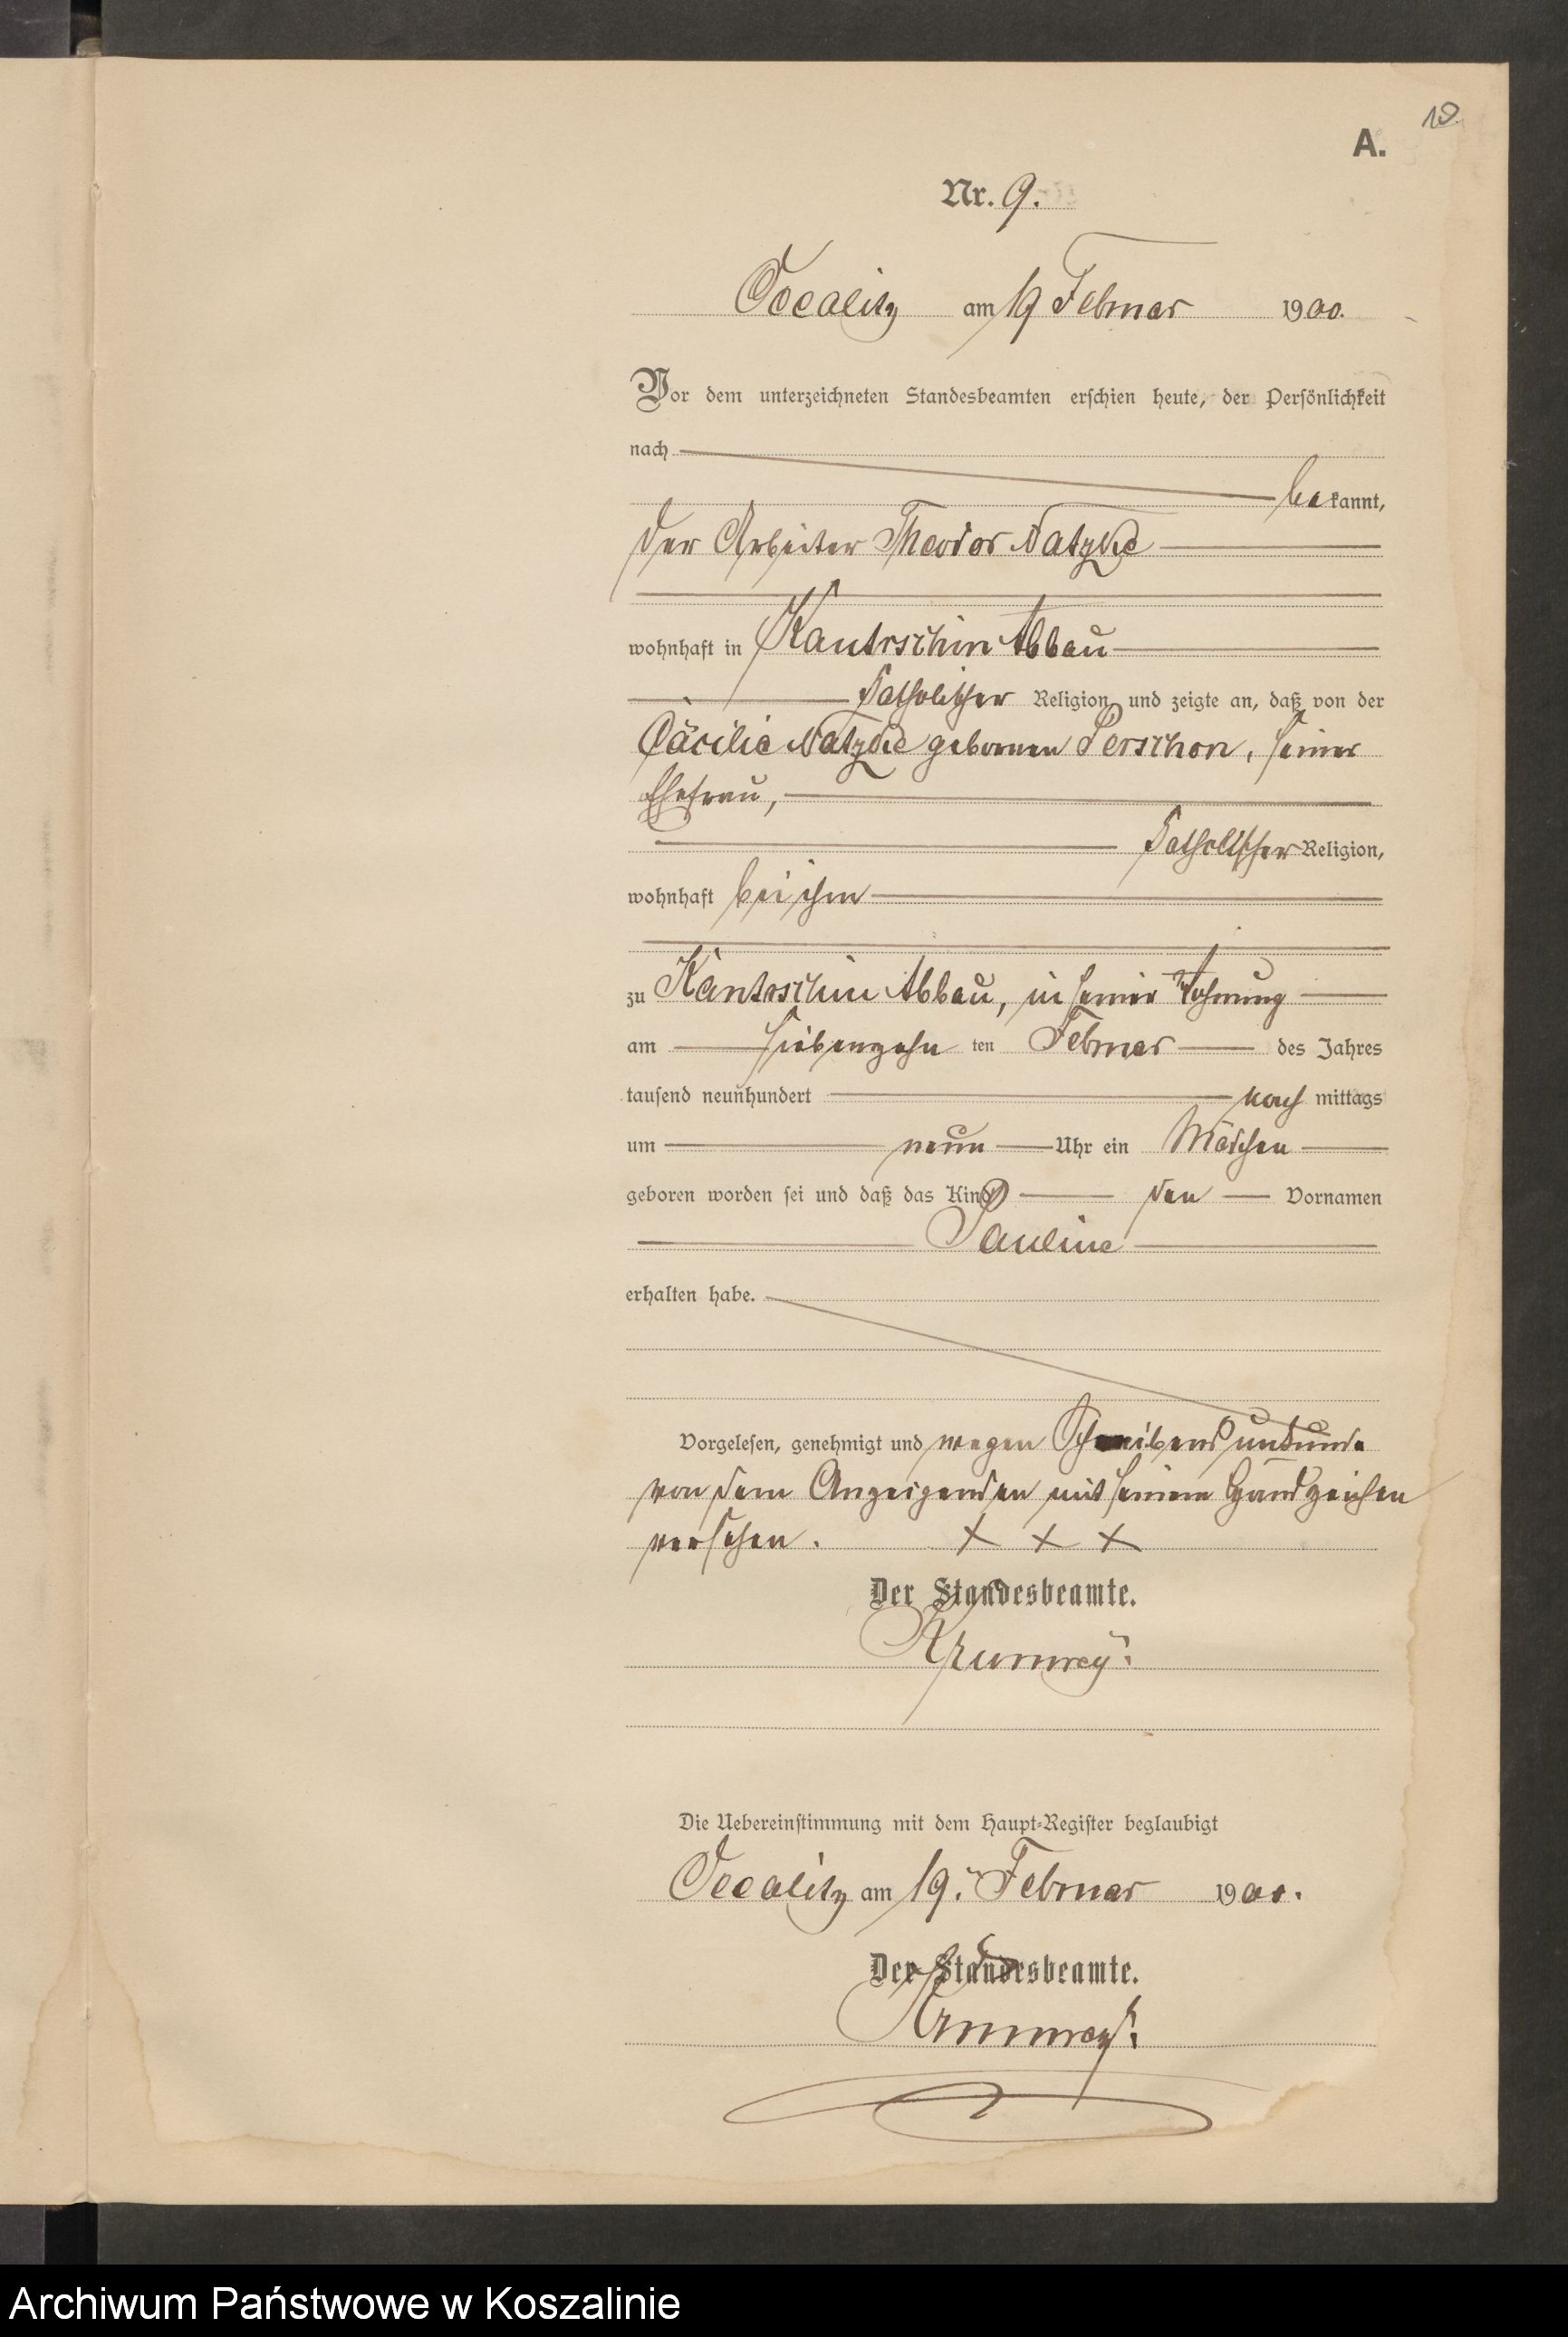 19.
A.
Nr. 9.
Occalitz am 19 Februar 1900.
Vor dem unterzeichneten Standesbeamten erschien heute, der Persönlichkeit
nach
bekannt,
der Arbeiter Theodor Natzke
wohnhaft in Kantrschin Abbau
katholischer Religion, und zeigte an, daß von der
Cäcilie Natzke gebornen Perschon, seiner
Ehefrau,
katholischer Religion,
wohnhaft bei ihm
zu Kantrschin Abbau, in seiner Wohnung
am siebenzehn ten Februar des Jahres
tausend neunhundert nach mittags
um neun Uhr ein Mädchen
geboren worden sei und daß das Kind den Vornamen
Pauline
erhalten habe.
Vorgelesen, genehmigt und wegen Schreibensunkunde
von dem Anzeigenden mit seinem Handzeichen
versehen. X X X
Der Standesbeamte.
Krumrey.
Die Uebereinstimmung mit dem Haupt-Register beglaubigt
Occalitz am 19. Februar 1900.
Der Standesbeamte.
Krumrey.
Archiwum Państwowe w Koszalinie